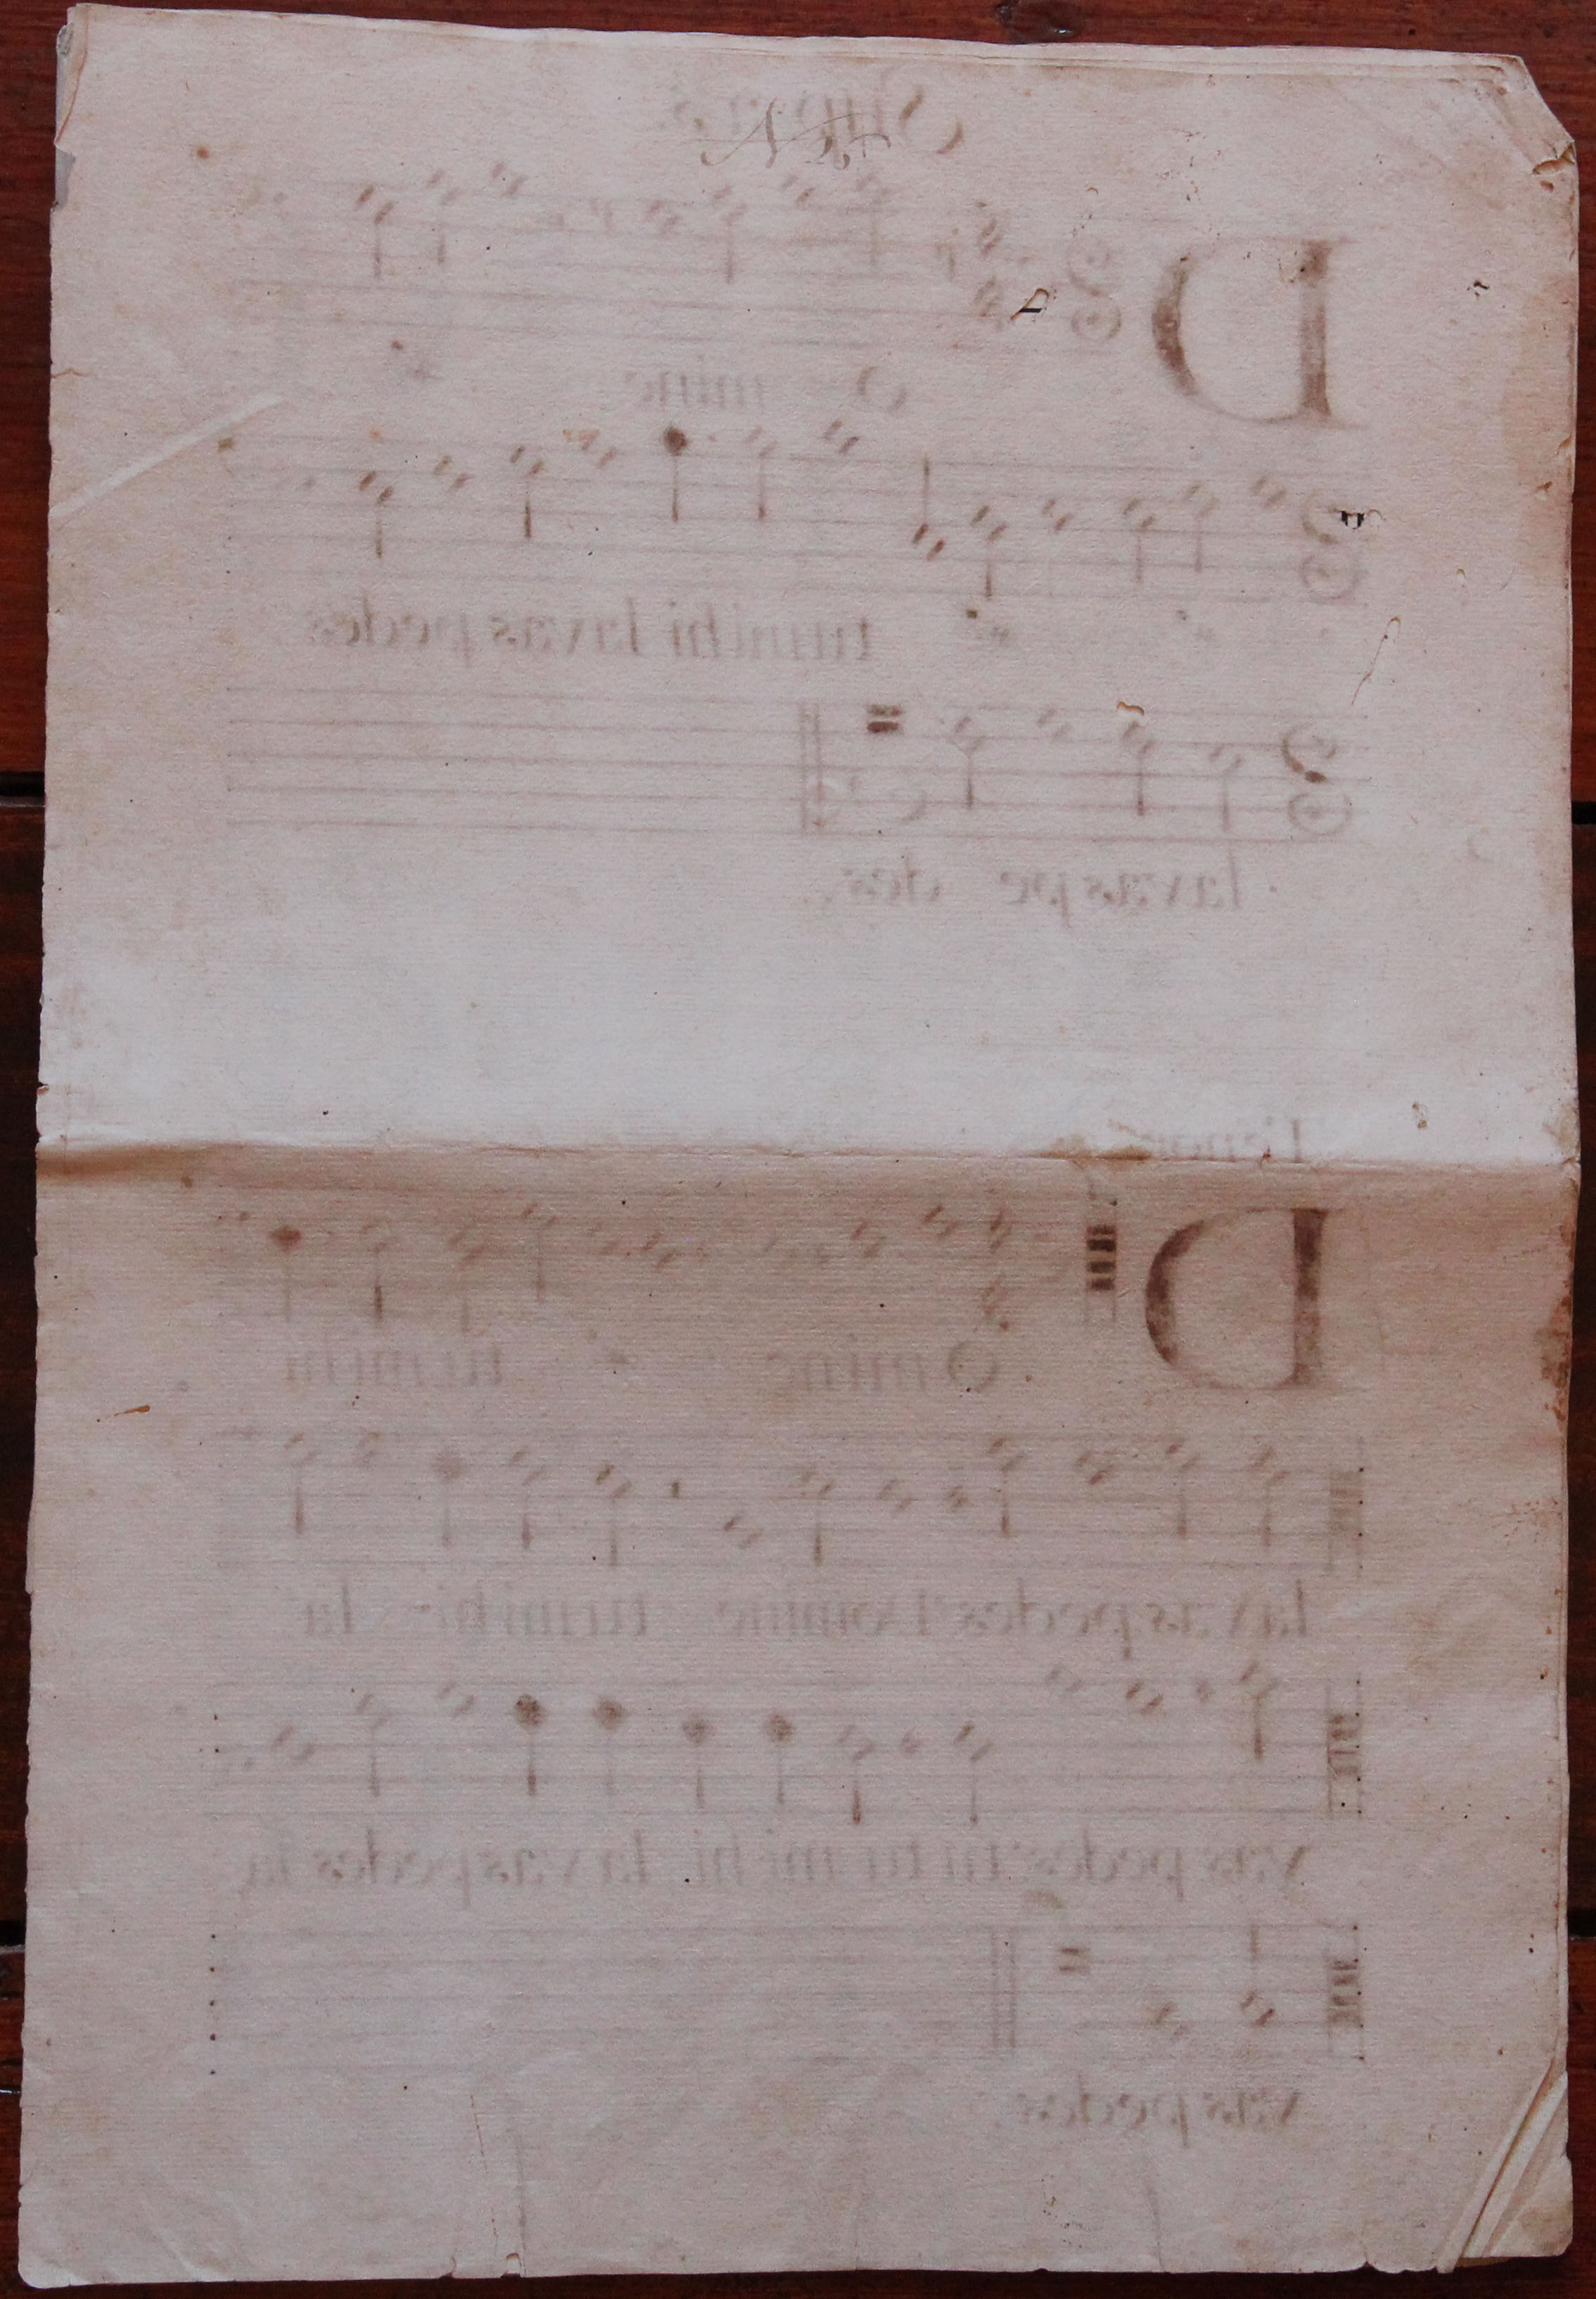 D
O mine
tu mihi lavas pedes
lavas pe des.
D
O mine tu mihi
lavas pedes Domine tu mihi la
vas pedes tu tu mi hi lavas pedes la
vas pedes.